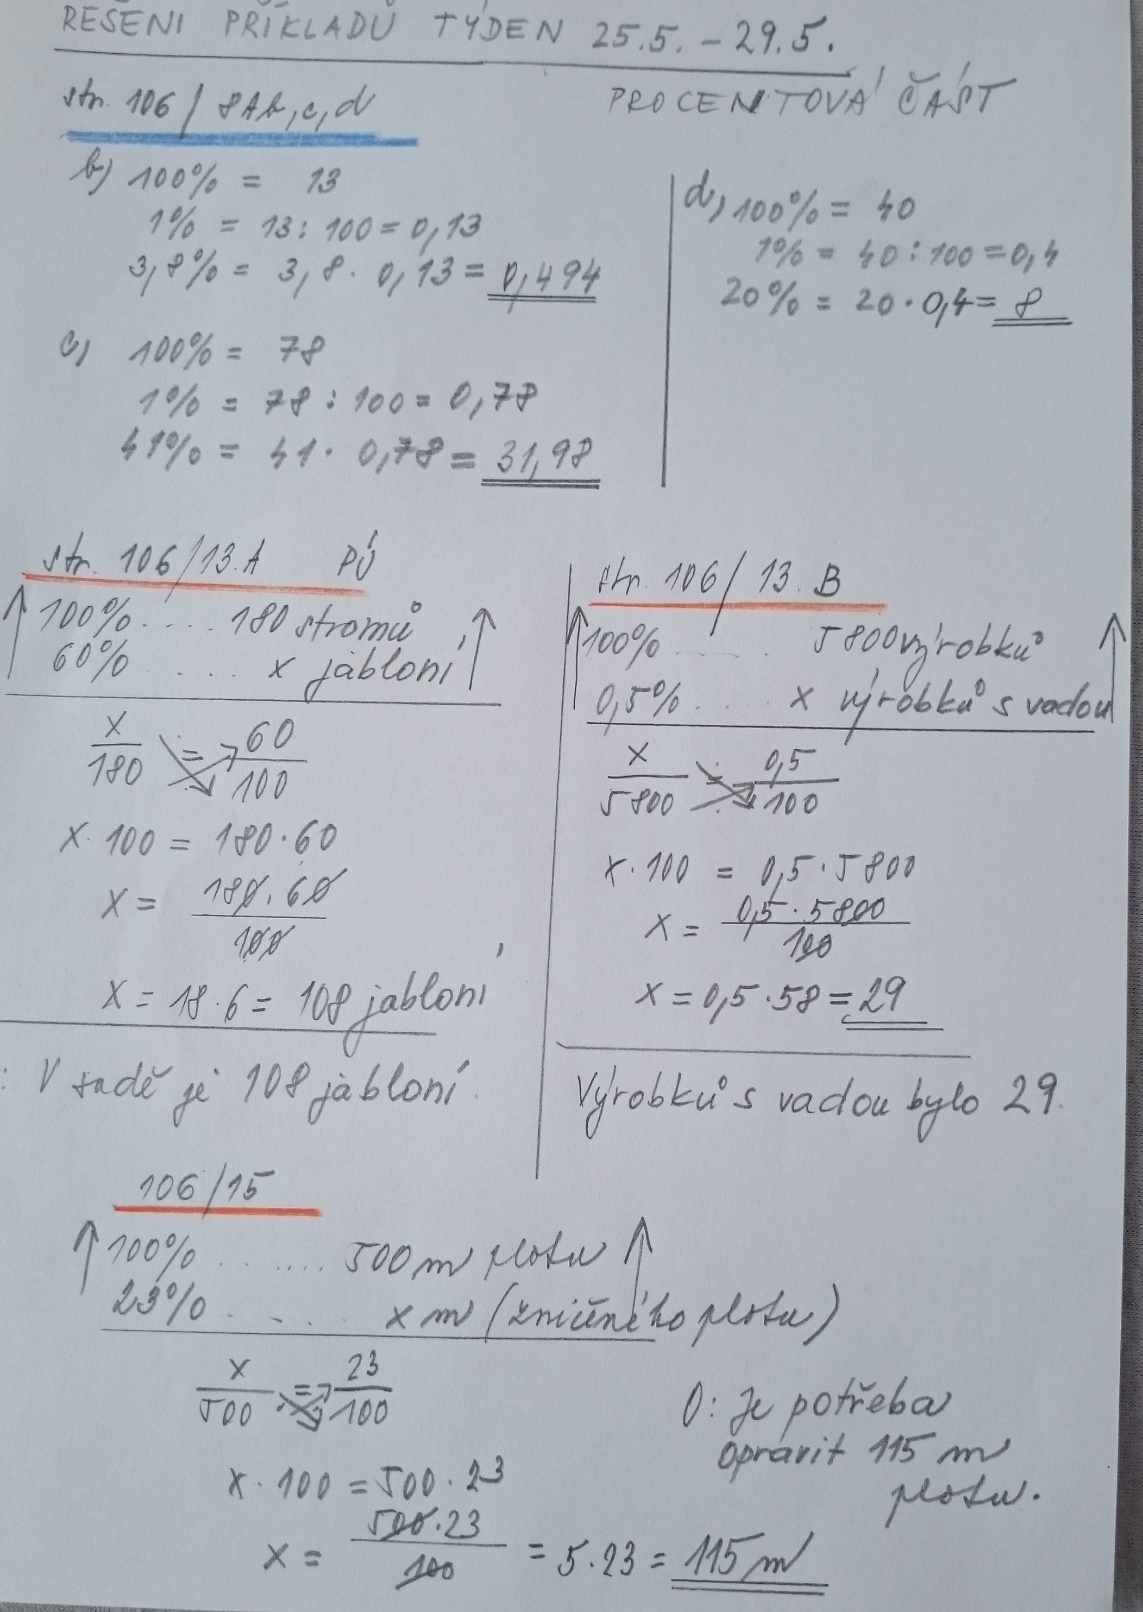 ŘEŠENÍ PŘÍKLADŮ TÝDEN 25.5. – 29.5.
PROCENTOVÁ ČÁST
str. 106 / 8Ab, c, d
b) 100% = 13
1% = 13 : 100 = 0,13
3,8% = 3,8 · 0,13 = 0,494
c) 100% = 78
1% = 78 : 100 = 0,78
41% = 41 · 0,78 = 31,98
d) 100% = 40
1% = 40 : 100 = 0,4
20% = 20 · 0,4 = 8
str. 106 / 13. A PÚ
↑ 100% ..... 180 stromů ↑
60% .... x jabloní
x/180 = 60/100
x · 100 = 180 · 60
x = 180 · 60 / 100
x = 18 · 6 = 108 jabloní
: V sadě je 108 jabloní.
str. 106 / 13. B
↑ 100% ..... 5800 výrobků ↑
0,5% .... x výrobků s vadou
x/5800 = 0,5/100
x · 100 = 0,5 · 5800
x = 0,5 · 5800 / 100
x = 0,5 · 58 = 29
Výrobků s vadou bylo 29.
106 / 15
↑ 100% ...... 500 m plotu ↑
23% ..... x m (zničeného plotu)
x/500 = 23/100
x · 100 = 500 · 23
x = 500 · 23 / 100 = 5 · 23 = 115 m
O: Je potřeba
opravit 115 m
plotu.